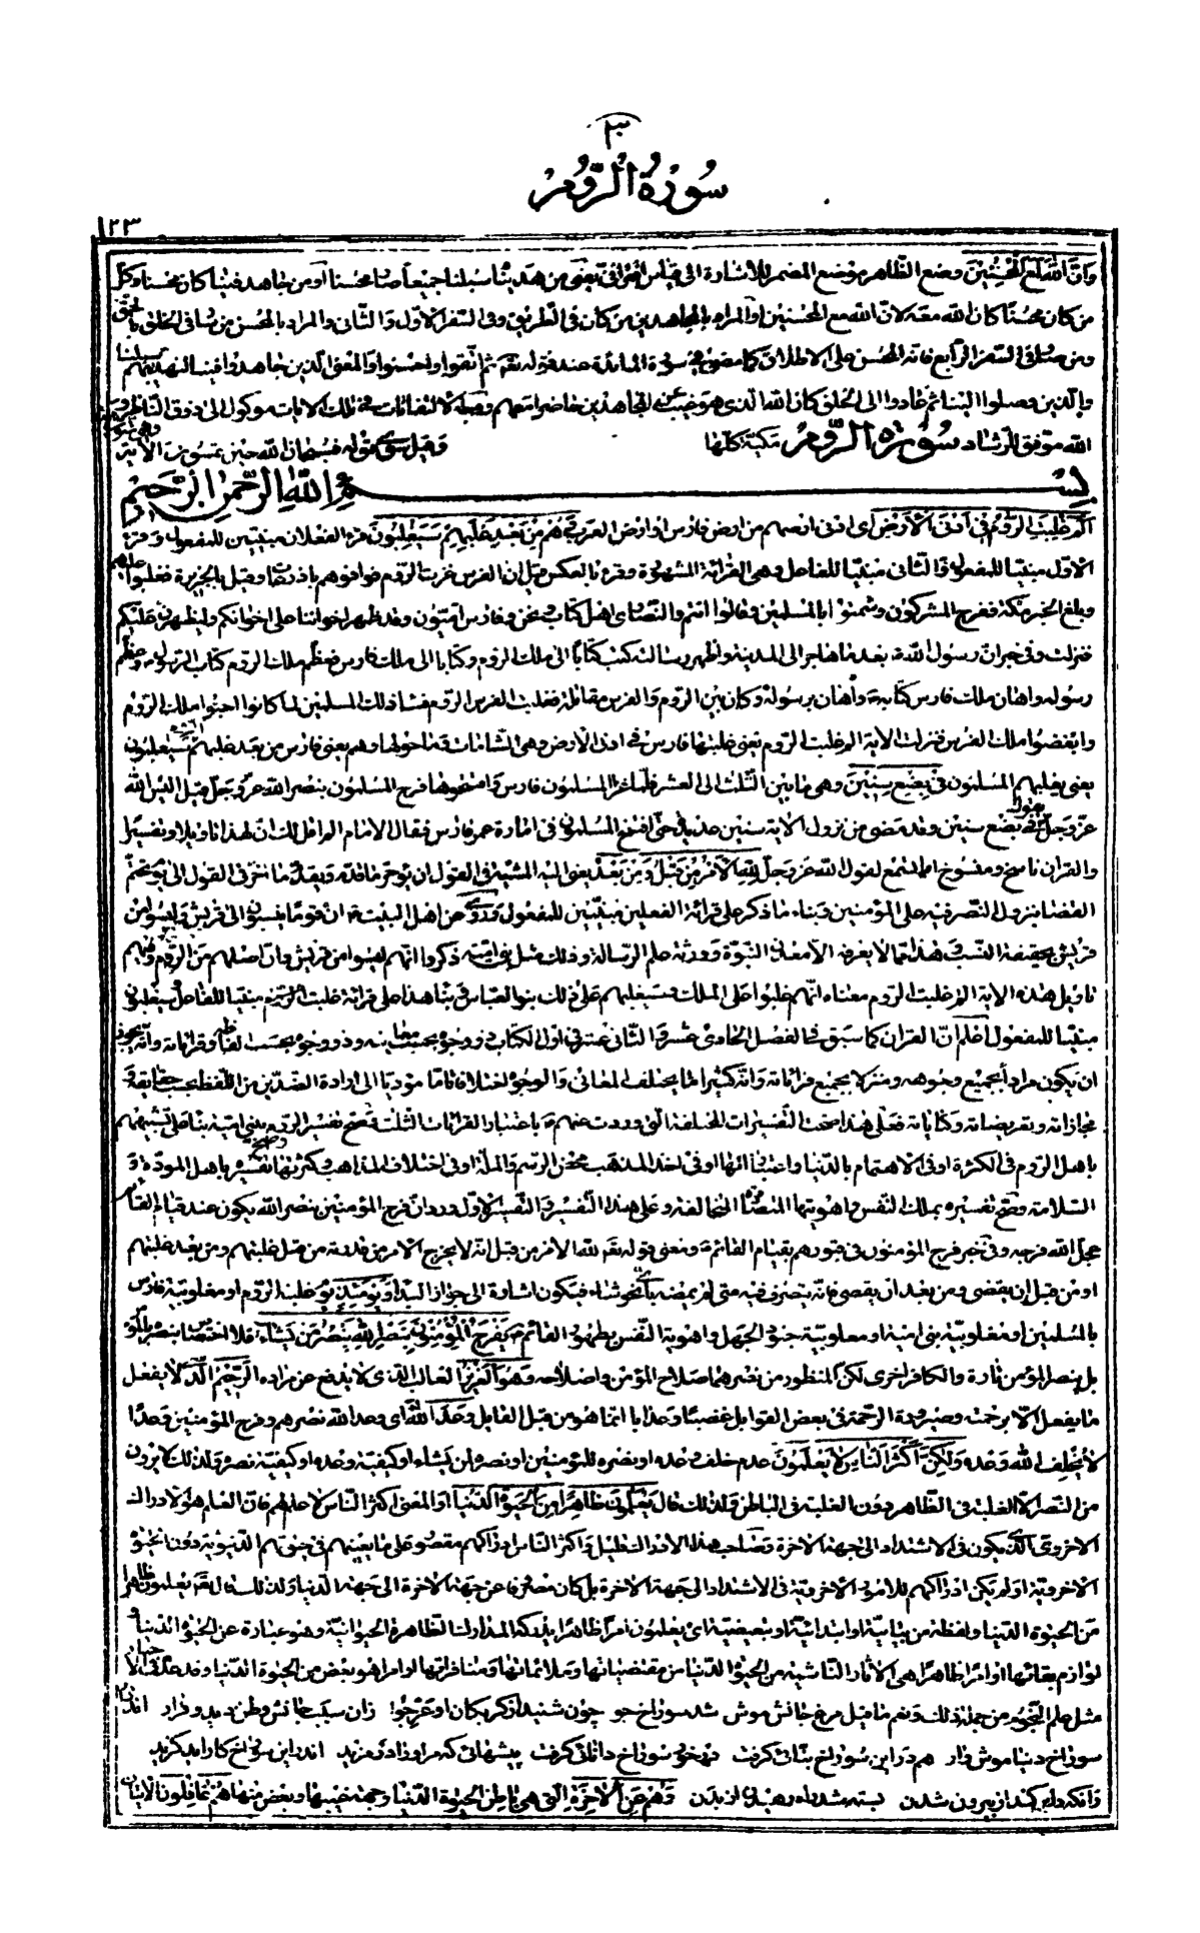 ٣
سُورَةُ الرُّومِ
١٢٣
وَاِنَّ اللّٰهَ لَمَعَ الْمُحْسِنِينَ وضع الظّاهر موضع المضمر للاشارة الى قياس هدينا سبلنا جميعا صار محسنا ومن جاهد فينا كان محسنا وكلّ
من كان محسنا كان الله معه لانّ الله مع المحسنين او المراد بالمجاهدين من كان فى الطريق وفى السّفر الاوّل والثّانى والمراد بالمحسن من سافر فى الخلق بالحقّ
ومن فى السّفر الرّابع فانّه المحسن على الاطلاق كما مضى فى سورة المائدة عند قوله تعالى ثمّ اتّقوا واحسنوا والمعنى الّذين جاهدوا فينا لنهدينّهم سبلنا
والّذين وصلوا الينا ثمّ عادوا الى الخلق كان الله الّذى هو معهم وجه الالتفات فى تلك الايات موكول الى ذوق النّاظر
الله موفق للرّشاد سُورَةُ الرُّومِ مكيّة كلّها وقيل سوى قوله فسبحان الله حين تمسون الاية
بِسْمِ اللّٰهِ الرَّحْمٰنِ الرَّحِيمِ
الٓمٓ غُلِبَتِ الرُّومُ فِى اَدْنَى الْاَرْضِ اى ادنى ارضهم من ارض فارس او ارض العرب وَهُمْ مِنْ بَعْدِ غَلَبِهِمْ سَيَغْلِبُونَ قرء الفعلان مبنيّين للمفعول وقرء
الاوّل مبنيّا للمفعول والثّانى مبنيّا للفاعل وهى القرائة المشهورة وقرء بالعكس قيل انّ الفرس غزت الرّوم فوافوهم باذرعات وقيل بالجزيرة فغلبوا عليهم
وبلغ الخبر مكّة ففرح المشركون وشمتوا بالمسلمين وقالوا انتم والنّصارى اهل كتاب ونحن وفارس امّيّون وقد ظهر اخواننا على اخوانكم ولنظهرنّ عليكم
فنزلت وفى خبر انّ رسول الله بعد ما هاجر الى المدينة واظهر رسالته كتب كتابا الى ملك الرّوم وكتابا الى ملك فارس فعظّم ملك الرّوم كتاب الرّسول وعظّم
رسوله واهان ملك فارس كتابه واهان برسوله وكان بين الرّوم والفرس مقاتلة فغلبت الفرس الرّوم فساء ذلك المسلمين لما كانوا احبّوا ملك الرّوم
وابغضوا ملك الفرس فنزلت الاية الم غلبت الرّوم يعنى غلبتها فارس فى ادنى الارض وهى الشّامات وما حولها وهم يعنى فارس من بعد غلبهم سيغلبون
يعنى يغلبهم المسلمون فِى بِضْعِ سِنِينَ وهى ما بين الثّلث الى العشر فلمّا غزا المسلمون فارس وافتتحوها فرح المسلمون بنصر الله عزّ وجلّ قيل اليس الله
عزّ وجلّ يقول فى بضع سنين وقد مضى من نزول الاية سنين عديدة حتّى افتتح المسلمون فى امارة عمر فارس فقال الامام الم اقل لك انّ لهذا تاويلا وتفسيرا
والقران ناسخ ومنسوخ اما تسمع لقول الله عزّ وجلّ لِلّٰهِ الْاَمْرُ مِنْ قَبْلُ وَمِنْ بَعْدُ يعنى اليه المشيّة فى القول ان يؤخّر ما قدّم ويقدّم ما اخّر فى القول الى يوم تحتّم
القضاء بنزول النّصر فيه على المؤمنين وبناء ما ذكر على قرائة الفعلين مبنيّين للمفعول وروى عن اهل البيت انّ قوما ينسبون الى قريش وليسوا من
قريش بحقيقة النّسب وهذا ممّا لا يعرفه الّا معدن النّبوّة وورثة علم الرّسالة وذلك مثل بنى اميّة ذكروا انّهم ليسوا من قريش وانّ اصلهم من الرّوم وفيهم
تاويل هذه الاية الم غلبت الرّوم معناه انّهم غلبوا على الملك وسيغلبهم على ذلك بنو العبّاس بناء هذا على قرائة غلبت الرّوم مبنيّا للفاعل سيغلبون
مبنيّا للمفعول اعلم انّ القران كما سبق فى الفصل الحادى عشر والثّانى عشر فى اوّل الكتاب ذو وجوه بحسب معانيه وذو وجوه بحسب لفظه وقراءاته وانّه يجوز
ان يكون مرادا بجميع وجوهه ومنزلا بجميع قراءاته وانّه كثيرا ما يختلف المعانى والوجوه اختلافا تامّا مؤدّيا الى ارادة الضّدّين من اللّفظ بحسب حقايقه و
مجازاته وتعريضاته وكناياته فعلى هذا صحّت التّفسيرات المختلفة الّتى وردت عنهم باعتبار القراءات الثّلث فصحّ تفسير الرّوم ببنى اميّة بناء على تشبيههم
باهل الرّوم فى الكثرة او فى الاهتمام بالدّنيا واعتباراتها او فى اخذ المذهب بمحض الرّسم والملّة او فى اختلاف المذاهب وكثرتها وصحّ تفسيره باهل المودّة و
السّلامة وصحّ تفسيره بملك النّفس واهويتها المتضادّة المتخالفة وعلى هذا التّفسير والتّفسير الاوّل ورد انّ فرح المؤمنين بنصر الله يكون عند قيام القائم
عجّل الله فرجه وفى خبر فرح المؤمنون فى قبورهم بقيام القائم ومعنى قوله تعالى لله الامر من قبل انّه لا يخرج الامر من قدرته من قبل غلبتهم ومن بعد غلبتهم
او من قبل ان يقضى ومن بعد ان يقضى فانّه يتصرّف فيه متى لم يمضه باىّ نحو شاء فيكون اشارة الى جواز البداء وَيَوْمَئِذٍ يوم غلبة الرّوم او مغلوبيّة فارس
بالمسلمين او مغلوبيّة بنى اميّة او مغلوبيّة جنود الجهل واهوية النّفس بظهور القائم يَفْرَحُ الْمُؤْمِنُونَ بِنَصْرِ اللّٰهِ يَنْصُرُ مَنْ يَشَاءُ فلا اختصاص بنصره بالمؤمن
بل ينصر المؤمن تارة والكافر اخرى لكن المنظور من نصرهما صلاح المؤمن واصلاحه وَهُوَ الْعَزِيزُ الغالب الّذى لا يدفع عن مراده الرَّحِيمُ الّذى لا يفعل
ما يفعل الّا برحمته وصيرورة الرّحمة فى بعض القوابل غضبا وعذابا انّما هو من قبل القابل وَعْدَ اللّٰهِ اى وعد الله نصرهم وفرح المؤمنين وعدا
لَا يُخْلِفُ اللّٰهُ وَعْدَهُ وَلٰكِنَّ اَكْثَرَ النَّاسِ لَا يَعْلَمُونَ عدم خلف وعده او نصره للمؤمنين او نصره لمن يشاء او كيفيّة وعده او كيفيّة نصره ولذلك لا يرون
من النّصر الّا الغلبة فى الظّاهر دون الغلبة فى الباطن ولذلك قال يَعْلَمُونَ ظَاهِرًا مِنَ الْحَيٰوةِ الدُّنْيَا او المعنى اكثر النّاس لا علم لهم فانّ العلم هو الادراك
الاخروىّ الّذى يكون فى الاشتداد الى جهة الاخرة وصاحب هذا الادراك قليل واكثر النّاس ادراكهم مقصور على ما يعينهم فى حيوتهم الدّنيويّة دون الحيوة
الاخرويّة او لم يكن ادراكهم للامور الاخرويّة فى الاشتداد الى جهة الاخرة بل كان منصرفا عن جهة الاخرة الى جهة الدّنيا ولذلك قال تعالى يعلمون ظاهرا
من الحيوة الدّنيا ولفظة من بيانيّة او ابتدائيّة او تبعيضيّة اى يعلمون امرا ظاهرا يدركه المدارك الظّاهرة الحيوانيّة وهو عبارة عن الحيوة الدّنيا و
لوازم بقائها او امرا ظاهرا هى الاثار النّاشئة من الحيوة الدّنيا من مقتضياتها وملائماتها ومنافراتها او امرا هو بعض من الحيوة الدّنيا وقد عدّ فى الاخبار
مثل علم النّجوم من جملة ذلك ونعم ما قيل مرغ جانش موش شد سوراخ جو چون شنيد از گربكان او عرّجوا زان سبب جانش وطن ديد و قرار اندر اين
سوراخ دنيا موش وار هم در اين سوراخ بنّائى گرفت در خور سوراخ دانائى گرفت پيشهائى كه مر او را در مزيد اندر اين سوراخ كار آمد گزيد
زانكه دل بر كند از بيرون شدن بسته شد راه رهيدن از بدن وَهُمْ عَنِ الْاٰخِرَةِ الّتى هى باطن الحيوة الدّنيا وجهة غيبها وبعض منها هُمْ غَافِلُونَ